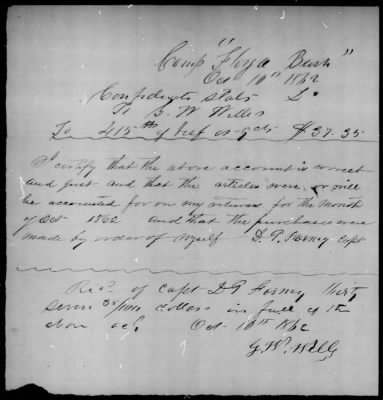 Camp "Floyd Bush"
Oct 10th 1862
Confederate States
To G. W. Wells
To 415 lbs of beef 9 cts $37.35
I certify that the above account is correct
and just and that the articles were or will
be accounted for on my return for the month
of Oct 1862 and that the purchases were
made by order of myself D. P. Forney Capt
Recd of Capt D P Forney thirty
seven 35/100 dollars in full of the
above act. Oct 10th 1862
G. W. Wells